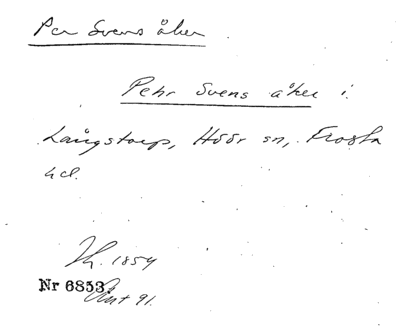 Per Svens åker
Pehr Svens åker i
Långstorp, Höör sn, Frosta
hd.
1854
Nr 6853
91.